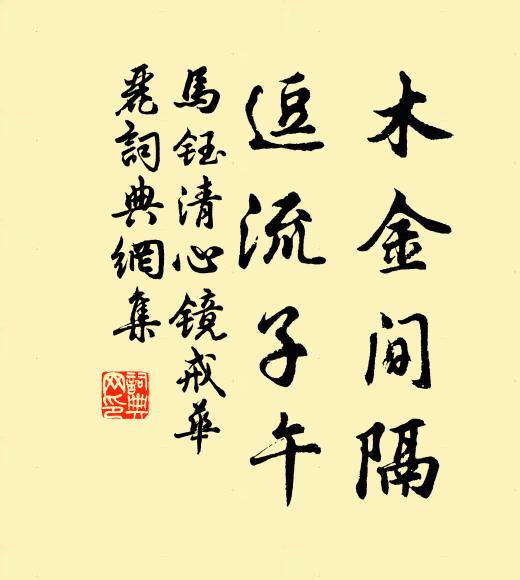 木金间隔
逗流子午
馬鈺清心镜戒華
麗詞典網集
詞典
网印